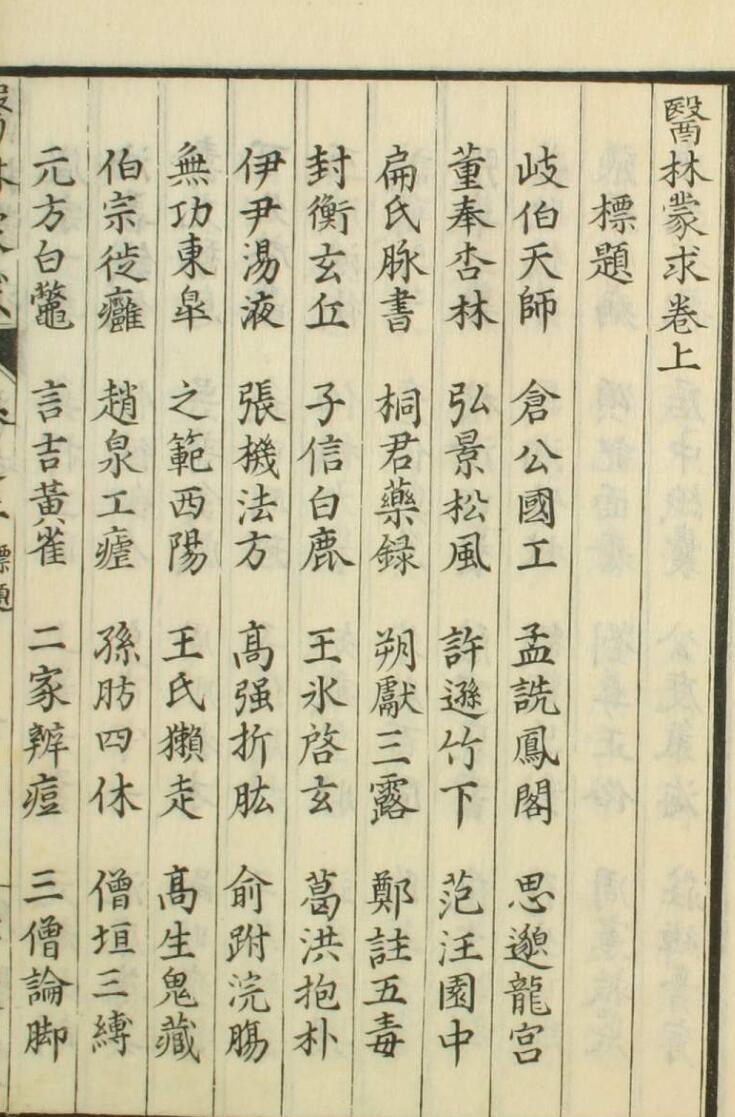 醫林蒙求卷上
標題
岐伯天師 倉公國工 孟詵鳳閣 思邈龍宮
董奉杏林 弘景松風 許遜竹下 范汪園中
扁氏脉書 桐君藥録 朔獻三露 鄭註五毒
封衡玄丘 子信白鹿 王氷啓玄 葛洪抱朴
伊尹湯液 張機法方 高强折肱 俞跗浣腸
無功東皐 之範西陽 王氏獺走 高生鬼藏
伯宗徙癰 趙泉工瘧 孫昉四休 僧垣三縛
元方白鼈 言吉黃雀 二家辨痘 三僧論脚
標題